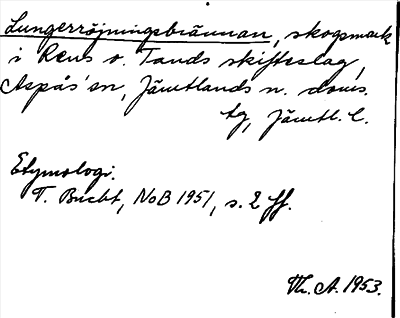 Lungerröjningsbrännan, skogsmark
i Rens o. Tands skifteslag,
Aspås' sn, Jämtlands n. doms.
tg, Jämtl. l.
Etymologi.
T. Bucht, NoB 1951, s. 2 ff.
Th. A. 1953.